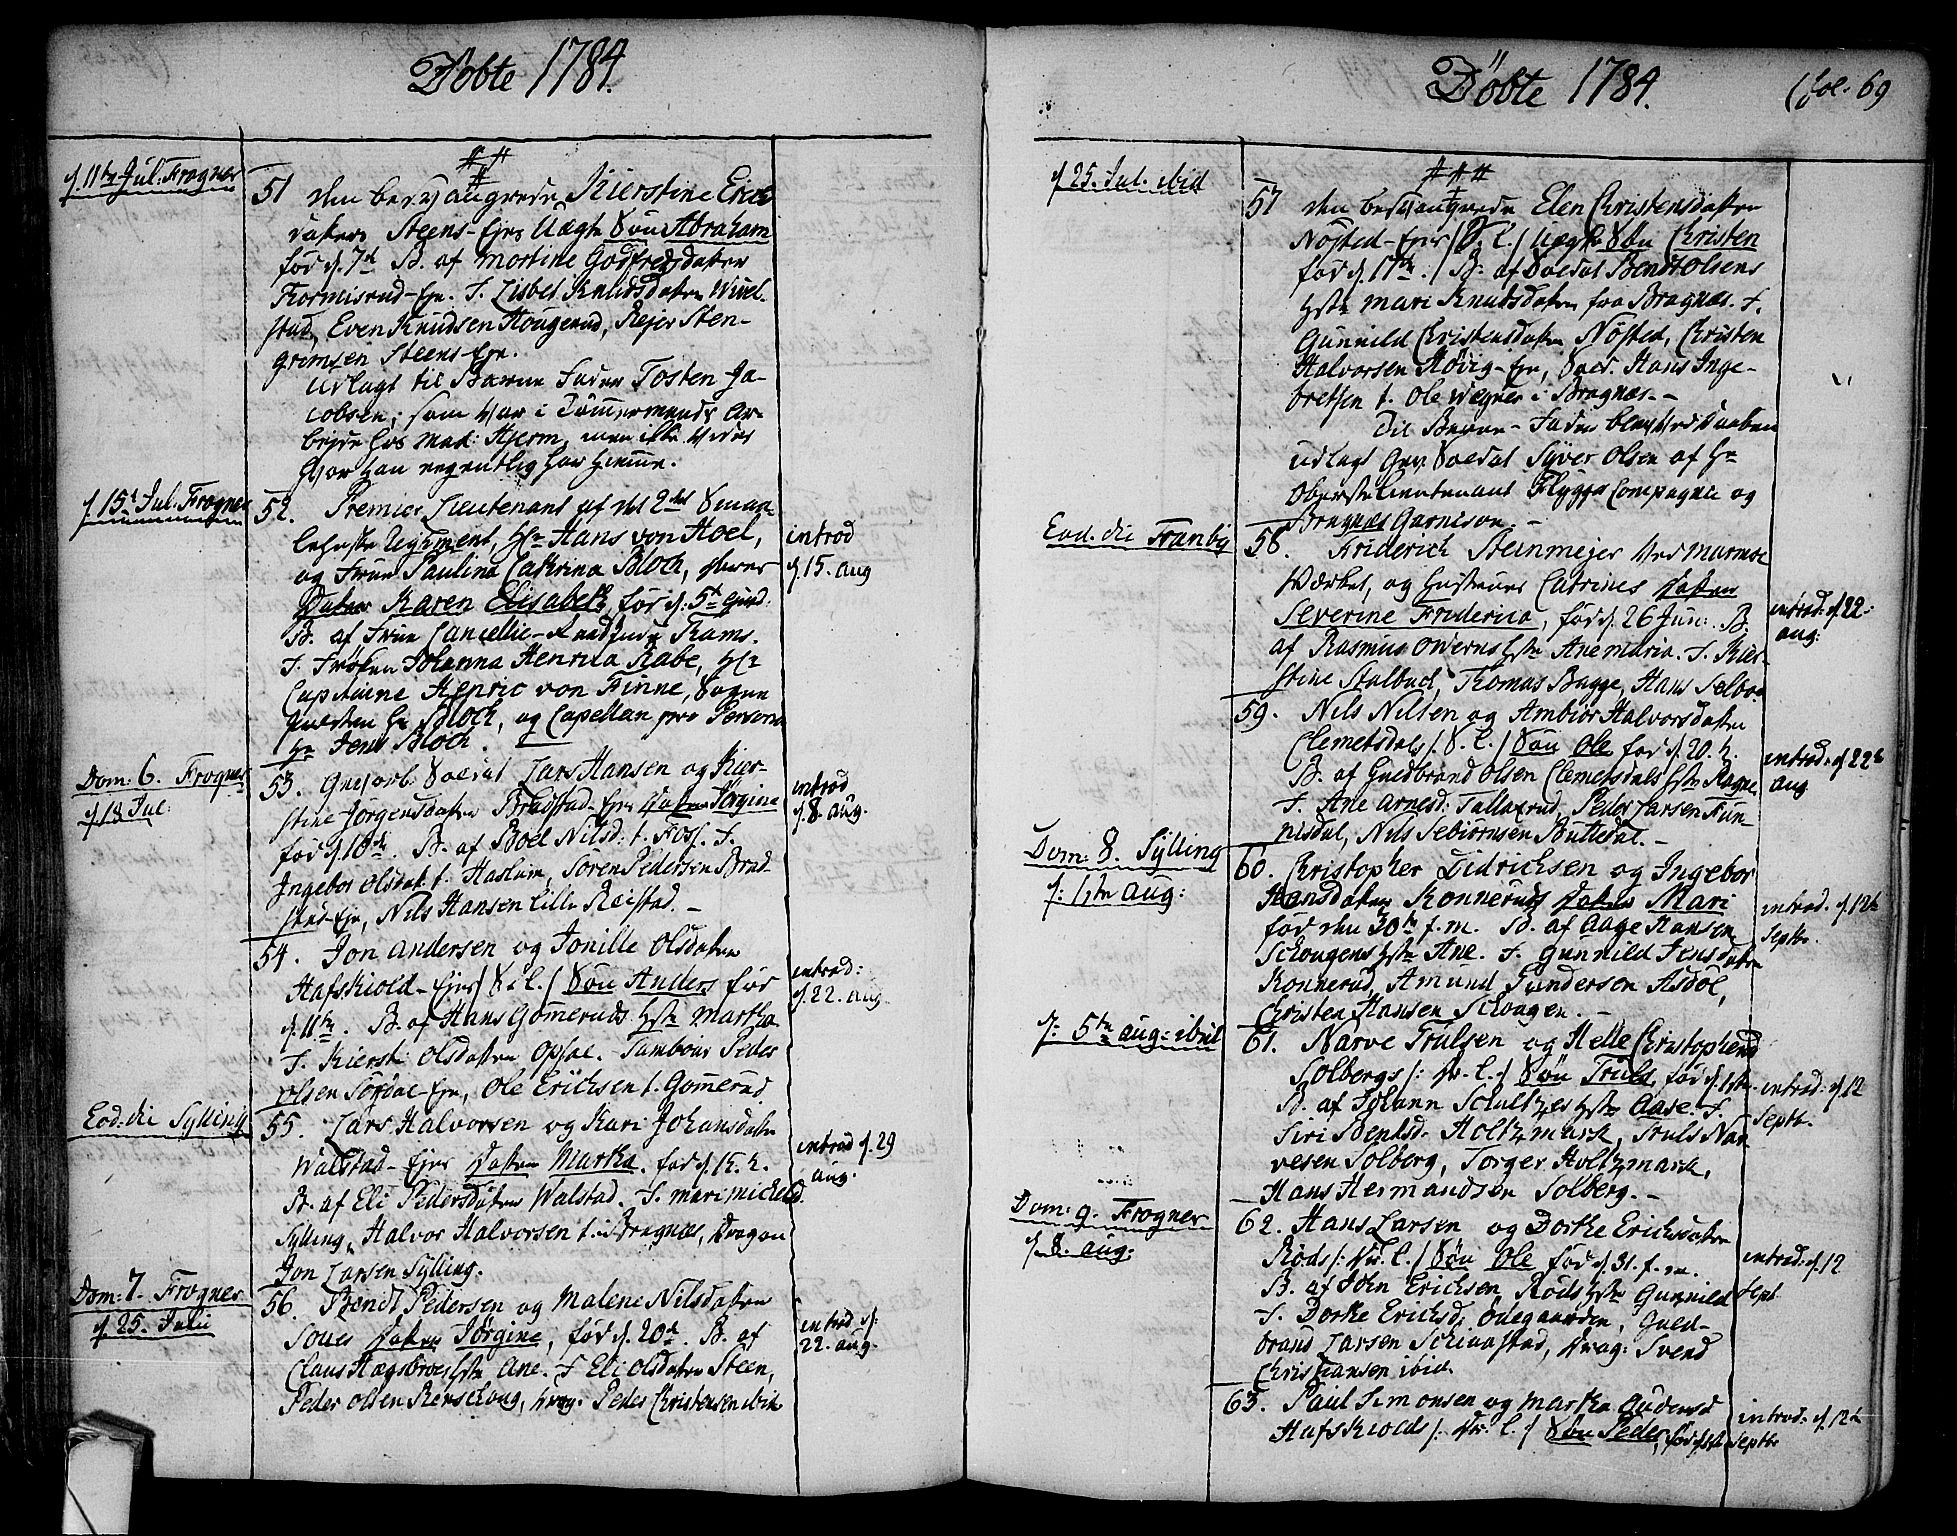 Døbte 1784.
d. 11te Jul: Frogner
51 den besvangrede Kierstine Erics
datters Steens-Ejes Uægte Søn Abraham
fød d. 7de B. af Mortine Godfredsdatter
Kormisrud-Eje. F. Lisbet Knudsdatter Wivel-
stad, Even Knudsen Hougerud, Rejer Sten-
grimsen Steens-Eje.
Udlagt til Barne Fader Tosten Ja-
cobsen, som var i Tømmermænds Ar-
bejde hos Mad: Hjerm, men ikke veed
hvor han egentlig har hjemme.
d. 15de Jul: Frogner
52. Premier Lieutenant af det 2det Smaa-
lehnske Regiment, Hr Hans von Hoel,
og Frue Paulina Cathrina Bloch, deres
Datter Karen Elisabeth, fød d: 5te ejusd:
B. af Frue Cancellie-Raadinde Rams.
F. Frøken Johanna Henrica Rabe, Hr
Capitaine Henric von Finne, Sogne
Præsten Hr Bloch, og Capellan pro Persona
Hr Jens Bloch.
introd
d. 15. Aug
Dom: 6. Frogner
d. 18 Jul:
53. Gevorb. Soldat Lars Hansen og Kier-
stine Jørgensdatter Bradstad-Ejes Datter Jørgine
fød d. 10de. B. af Boel Nilsd: t. Foss. F.
Ingebor Olsdat: t. Haslum, Soren Pedersen Brad-
stad-Eje, Nils Hansen Lille Reistad. -
introd
d. 8. Aug.
54. Jon Andersen og Jonille Olsdatter
Hafskiold-Ejes /: S. L. / Søn Anders fød
d. 11te. B. af Hans Gomeruds Hstr Martha
F. Kierst: Olsdatter Opsal. Tambour Peder
Olsen Sørdal-Eje, Ole Erichsen t. Gomerud.
introd:
d. 22. Aug
Eod: die Sylling
55. Lars Halvorsen og Kari Johansdatter
Walstad-Ejes Datter Martha. fød d. 15. h.
B. af Eli Pedersdatter Walstad. F. Mari Michelsd.
Sylling, Halvor Halvorsen t. i Bragnæs, Dragon
Jon Larsen Sylling.
introd d. 29
Aug:
Dom: 7. Frogner
d. 25. Julii
56. Bendt Pedersen og Malene Nilsdatter
Soues Datter Jørgine, fød d. 20de. B. af
Claus Hægsbroes Hstr Ane. F Eli Olsdatter Steen,
Peder Olsen Rerschoug, Drag. Peder Christensen ibid.
introd d:
22. Aug.
Døbte 1784.
(fol. 69
d. 25. Jul. ibid
57 den besvangrede Elen Christensdatter
Nøsted-Ejes /: S. L. / Uægte Søn Kristen
fød d. 17de. B. af Soldat Bendt Olsens
Hstr Mari Knudsdatter fra Bragnæs. F.
Gunnild Christensdatter Nøsted, Christen
Halvorsen Høvig-Eje, Sold. Hans Inge-
bretsen t. Ole Wegner i Bragnæs. -
Til Barne-Fader blev ved Daaben
udlagt Gev: Soldat Syver Olsen af Hr
Oberstelieutenant Flygge Compagnie og
Bragnæs Garnison. -
Eod. die Tranby
58. Friderich Steinmejer ved Marmor
Værket, og Hustrues Catrines Datter
Severine Friderica, fød d. 26 Jun: B.
af Rasmus Owerns Hstr Ane Maria. F. Kier-
stine Stalbud, Thomas Bagge, Hans Selboe
introd: d. 22
Aug:
59. Nils Nilsen og Ambiør Halvorsdatter
Clemetsdals /: S. L. / Søn Ole fød d. 20. h.
B. af Guldbrand Olsen Clemetsdals Hstr Ragne
F. Ane Arnesd: Tallaxrud, Peder Larsen Fun-
nisdal, Nils Sebiørnsen Buttedal. -
introd: d. 22de
Aug
Dom: 8. Sylling
d: 1ste Aug:
60. Christopher Didrichsen og Ingebor
Hansdatter Konneruds Datter Mari
fød den 30te f. m. B. af Aage Hansen
Schougens Hstr Ane. F. Gunnild Jensdatter
Konnerud, Amund Gundersen Asdøl,
Christen Hansen Schougen. -
introd: d. 12te
Septbr.
d: 5te Aug: ibid
61. Narve Trulsen og Helle Christophersd
Solbergs /: Dr. L. / Søn Truls, fød d. 1ste.
B. af Johann Schultzes Hstr Aase. F.
Siri Bentsd. Holtzmark, Truls Nar-
vesen Solberg, Torger Holtzmark,
Hans Hermandsen Solberg. -
introd: d. 12
Septbr.
Dom: 9. Frogner
d. 8. Aug:
62. Hans Larsen og Dorthe Erichsdatter
Røds /: Dr. L. / Søn Ole fød d. 31. f. m.
B. af John Erichsen Røds Hstr Gunnild
F. Dorthe Erichsd. Ødegaarden, Guld-
brand Larsen Schiaastad, Drag: Svend
Christiansen ibid.
introd: d. 12
Sept
63. Paul Simonsen og Martha Gudersd
Hafskiolds /: Dr. L. / Søn Peder, fød
introd: d. 12te
Septbr